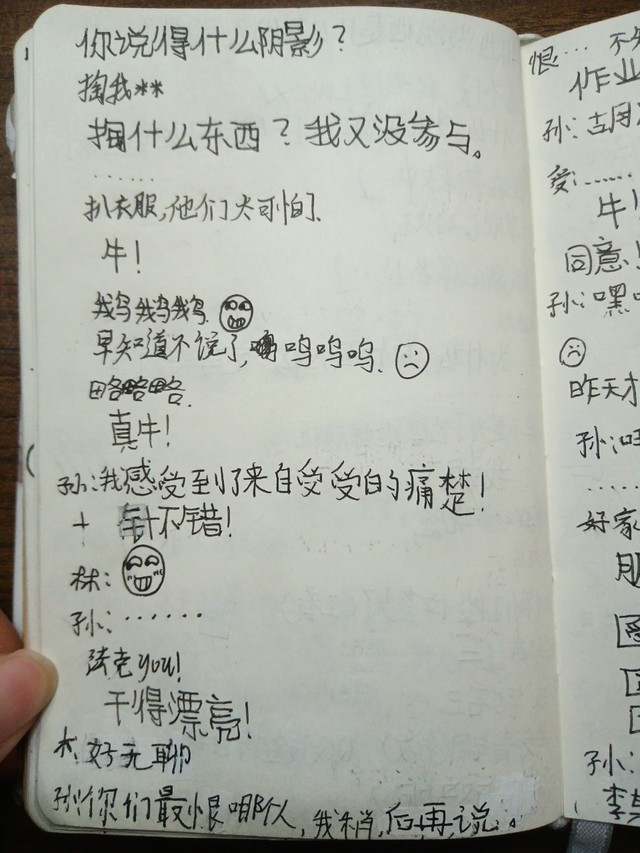 你说得什么阴影？
掏我**
掏什么东西？我又没参与。
......
扒衣服,他们太可怕了.
牛！
我呜我呜我呜.
早知道不说了,呜呜呜.
略略略.
真牛！
孙:我感受到了来自受受的痛楚！
+ 针不错！
林:
孙:......
法克you!
干得漂亮！
木:好无聊
孙:你们最恨哪个人,我稍后再说。
恨... 不
作业
孙:
受:......
牛！
同意！
孙:嘿
昨天才
孙:
.....
好家
服
孙:
李